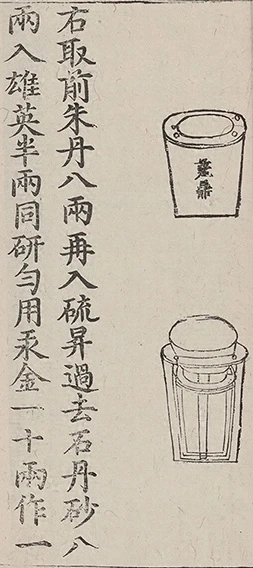 鼎
右取前朱丹八兩再入硫昇過去石丹砂八
兩入雄英半兩同研勻用汞金一十兩作一